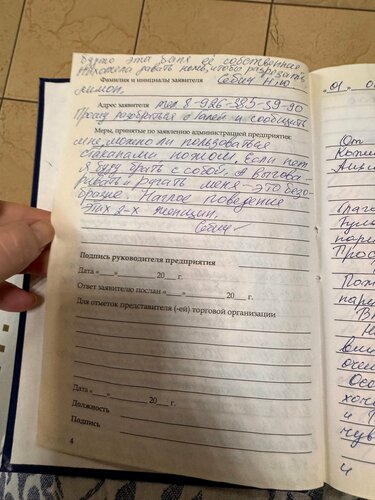 будто эта баня её собственная
Не хотела давать ножа, чтобы разрезать
Фамилия и инициалы заявителя Себиц Н.Ю
лимон.
Адрес заявителя тел 8-926-383-39-90
Прошу разобраться с Галей и сообщить
Меры, принятые по заявлению администрацией предприятия:
мне, можно ли пользоваться
стаканами, ножом, Если нет
я буду брать с собой. А выгова-
ривать и ругать меня - это безо-
бразие. Наглое поведение
этих 2-х женщин.
Подпись руководителя предприятия
Дата «___»__________ 20__ г.
Ответ заявителю послан «___»__________ 20__ г.
Для отметок представителя (-ей) торговой организации
Дата «___»__________ 20__ г.
Должность
Подпись
4
"01"
От
Глаго
Тула
пари
Прос
Поэт
пари
В
Н
вни
очен
Осо
хоч
и
чув